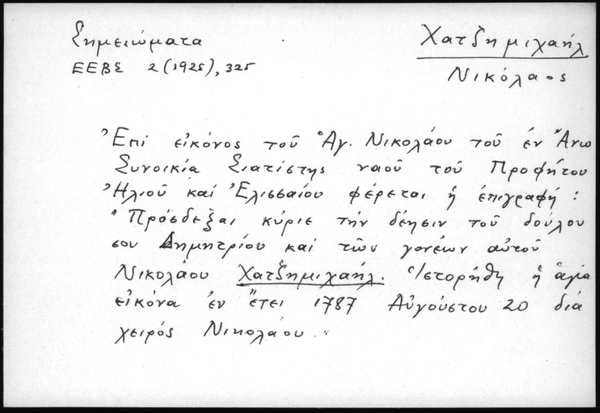 Σημειώματα
ΕΕΒΣ 2 (1925), 325
Χατζημιχαήλ
Νικόλαος
Ἐπί εἰκόνος τοῦ Ἁγ. Νικολάου τοῦ ἐν Ἄνω
Συνοικίᾳ Σιατίστης ναοῦ τοῦ Προφήτου
Ἠλιοῦ καί Ἐλισσαίου φέρεται ἡ ἐπιγραφή:
"Πρόσδεξαι κύριε τήν δέησιν τοῦ δούλου
σου Δημητρίου καί τῶν γονέων αὐτοῦ
Νικολάου Χατζημιχαήλ. Ἱστορήθη ἡ ἁγία
εἰκόνα ἐν ἔτει 1787 Αὐγούστου 20 διά
χειρός Νικολάου."